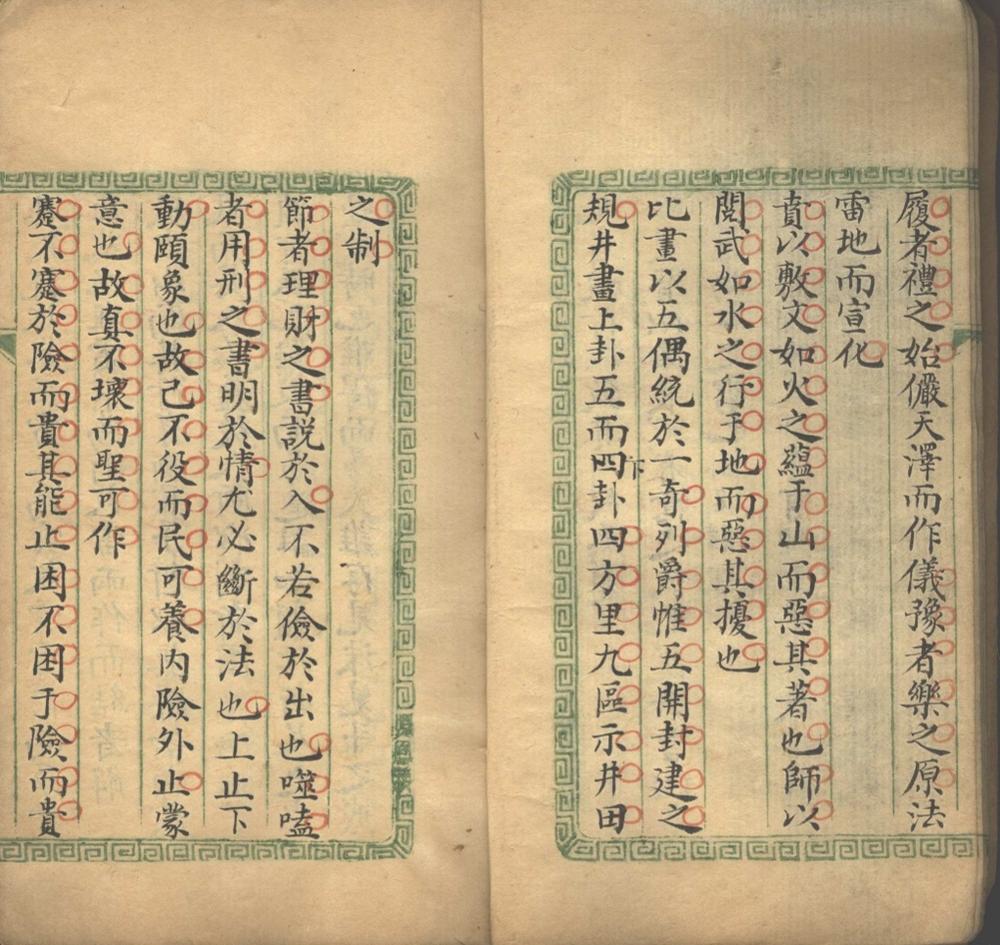 履者禮之始儼天澤而作儀豫者樂之原法
雷地而宣化
賁以敷文如火之蘊于山而惡其著也師以
閱武如水之行于地而惡其擾也
比畫以五偶統於一奇列爵惟五開封建之
規井畫上卦五而四卦四方里九區示井田
卞
之制
節者理財之書説於入不若儉於出也噬嗑
者用刑之書明於情尤必斷於法也上止下
動頤象也故己不役而民可養内險外止蒙
意也故真不壞而聖可作
蹇不蹇於險而貴其能止困不困于險而貴